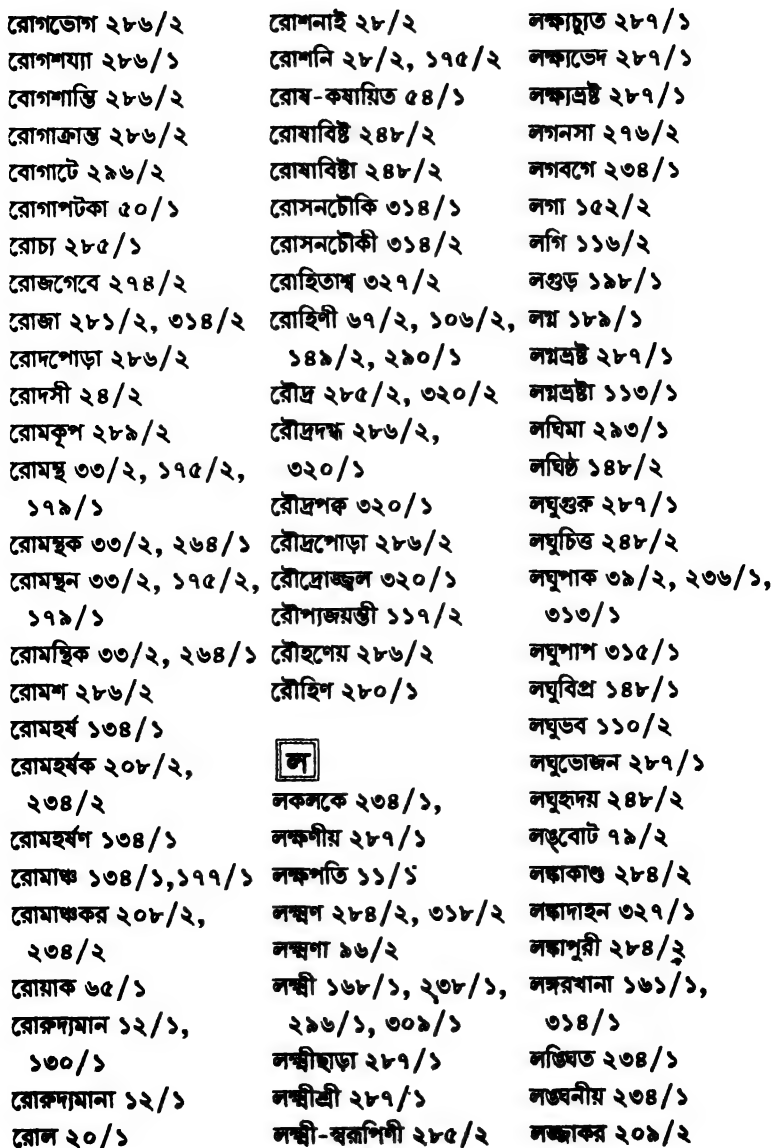 রোগভোগ ২৮৬/২
রোগশয্যা ২৮৬/১
বোগশান্তি ২৮৬/২
রোগাক্রান্ত ২৮৬/২
বোগাটে ২৯৬/২
রোগাপটকা ৫০/১
রোচ্য ২৮৫/১
রোজগেবে ২৭৪/২
রোজা ২৮১/২, ৩১৪/২
রোদপোড়া ২৮৬/২
রোদসী ২৪/২
রোমকূপ ২৮৯/২
রোমন্থ ৩৩/২, ১৭৫/২,
১৭৯/১
রোমন্থক ৩৩/২, ২৬৪/১
রোমন্থন ৩৩/২, ১৭৫/২,
১৭৯/১
রোমন্থিক ৩৩/২, ২৬৪/১
রোমশ ২৮৬/২
রোমহর্ষ ১৩৪/১
রোমহর্ষক ২০৮/২,
২৩৪/২
রোমহর্ষণ ১৩৪/১
রোমাঞ্চ ১৩৪/১,১৭৭/১
রোমাঞ্চকর ২০৮/২,
২৩৪/২
রোয়াক ৬৫/১
রোরুদ্যমান ১২/১,
১৩০/১
রোরুদ্যমানা ১২/১
রোল ২০/১
রোশনাই ২৮/২
রোশনি ২৮/২, ১৭৫/২
রোষ-কষায়িত ৫৪/১
রোষাবিষ্ট ২৪৮/২
রোষাবিষ্টা ২৪৮/২
রোসনচৌকি ৩১৪/১
রোসনচৌকী ৩১৪/২
রোহিতাশ্ব ৩২৭/২
রোহিণী ৬৭/২, ১০৬/২,
১৪৯/২, ২৯০/১
রৌদ্র ২৮৫/২, ৩২০/২
রৌদ্রদগ্ধ ২৮৬/২,
৩২০/১
রৌদ্রপক্ব ৩২০/১
রৌদ্রপোড়া ২৮৬/২
রৌদ্রোজ্জ্বল ৩২০/১
রৌপ্যজয়ন্তী ১১৭/২
রৌহণেয় ২৮৬/২
রৌহিণ ২৮০/১
ল
লকলকে ২৩৪/১,
লক্ষণীয় ২৮৭/১
লক্ষপতি ১১/১
লক্ষ্মণ ২৮৪/২, ৩১৮/২
লক্ষ্মণা ৯৬/২
লক্ষ্মী ১৬৮/১, ২৩৮/১,
২৯৬/১, ৩০৯/১
লক্ষ্মীছাড়া ২৮৭/১
লক্ষ্মীশ্রী ২৮৭/১
লক্ষ্মী-স্বরূপিণী ২৮৫/২
লক্ষ্যচ্যুত ২৮৭/১
লক্ষ্যভেদ ২৮৭/১
লক্ষ্যভ্রষ্ট ২৮৭/১
লগনসা ২৭৬/২
লগবগে ২৩৪/১
লগা ১৫২/২
লগি ১১৬/২
লগুড় ১৯৮/১
লগ্ন ১৮৯/১
লগ্নভ্রষ্ট ২৮৭/১
লগ্নভ্রষ্টা ১১৩/১
লঘিমা ২৯৩/১
লঘিষ্ঠ ১৪৮/২
লঘুগুরু ২৮৭/১
লঘুচিত্ত ২৪৮/২
লঘুপাক ৩৯/২, ২৩৬/১,
৩১৩/১
লঘুপাপ ৩১৫/১
লঘুবিপ্র ১৪৮/১
লঘুভব ১১০/২
লঘুভোজন ২৮৭/১
লঘুহৃদয় ২৪৮/২
লঙ্বোট ৭৯/২
লঙ্কাকাণ্ড ২৮৪/২
লঙ্কাদাহন ৩২৭/১
লঙ্কাপুরী ২৮৪/২
লঙ্গরখানা ১৬১/১,
৩১৪/১
লঙ্ঘিত ২৩৪/১
লঙ্ঘনীয় ২৩৪/১
লজ্জাকর ২০৯/২